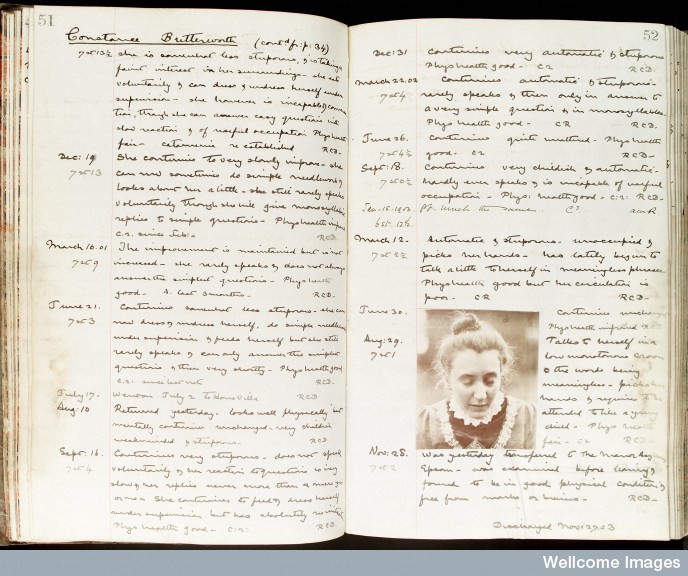 51
Constance Butterworth (contd f: p: 34)
7 st 13½ she is somewhat less stuporous, & is taking a
faint interest in her surroundings - she eats
voluntarily & can dress & undress herself under
supervision - she however is incapable of conversa
tion, though she can answer easy questions in a
slow reaction & of useful occupation Phys health
fair - catamenia re established RCD.
Dec: 19 She continues to very slowly improve - she
7 st 13 can now sometimes do simple needlework &
looks about her a little - she still rarely speaks
voluntarily though she will give monosyllabic
replies to simple questions - Phys health improved
C.2. since Feb: - RCD.
March 10.01 The improvement is maintained but is not
7 st 9 increased - she rarely speaks & does not always
answer the simplest questions - Phys health
good - A. last 3 months - RCD.
June 21. Continues somewhat less stuporous - she can
7 st 3 now dress & undress herself, do simple needlework
under supervision & feeds herself but she still
rarely speaks & can only answer the simplest
questions & then very shortly - Phys health good
C.2. since last note RCD.
July 17 - Went on July 2 to Hove Villa RCD
Aug: 10 Returned yesterday - looks well physically but
mentally continues unchanged - very childish
weakminded & stuporous - RCD
Sept: 16 Continues very stuporous - does not speak
7 st 4 voluntarily & her reaction to questions is very
slow & her replies never more than a mere yes
or no - She continues to feed & dress herself
under supervision but has absolutely no initiative
Phys health good - C:2: RCD.
52
Dec: 31 Continues very automatic & stuporous
Phys health good - C2 RCD.
March 22.02 Continues automatic & stuporous -
7 st 4 rarely speaks & then only in answer to
a very simple question & in monosyllables -
Phys health good - CR RCD.
June 26. Continues quite unchanged - Phys health
7 st 4½ good - C2 RCD -
Sept: 18. Continues very childish & automatic -
7 st 0½ hardly ever speaks & is incapable of useful
occupation - Phys: health good - C:2: RCD -
Jan. 16. 1903 Pt. much the same. C?
6 st. 12½
March 12. Automatic & stuporous - unoccupied &
7 st 2½ picks her hands - has lately begun to
talk a little to herself in meaningless phrases
Phys health good but her circulation is
poor - CR RCD -
June 30. Continues unchanged
Phys health impaired RCD
Aug: 29. Talks to herself in a
7 st 1 low monotonous croon
the words being
meaningless - picks her
hands & requires to be
attended to like a young
child - Phys health
fair - C2 RCD -
Nov: 28. Was yesterday transferred to The Manor Asy
7 st 2 Epsom - was examined before leaving &
found to be in good physical condition &
free from marks or bruises - RCD -
Discharged Nov: 27. 03
Wellcome Images